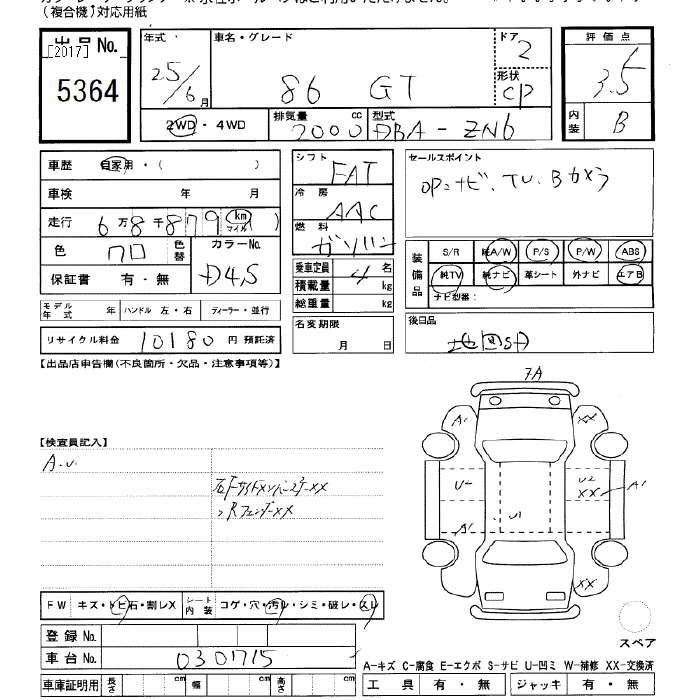 (複合機)対応用紙
出品No.
[2017]
5364
年式
25/6月
車名・グレード
86 GT
ドア
2
形状
CP
評価点
3.5
内装
B
2WD・4WD
排気量
2000cc
型式
DBA-ZN6
車歴 自家用・( )
車検 年 月
走行 6万8千879(km マイル)
色 クロ 色替
カラーNo.
D4S
保証書 有・無
モデル年式 年 ハンドル 左・右 ディーラー・並行
リサイクル料金 10180円 預託済
シフト
FAT
冷房
AAC
燃料
ガソリン
乗車定員 4名
積載量 kg
総重量 kg
名変期限
月 日
セールスポイント
OP:ナビ、TV、Bカメラ
装備品
S/R 純A/W P/S P/W ABS
純TV 純ナビ 革シート 外ナビ エアB
ナビ型番:
後日品
地図SD
【出品店申告欄(不良箇所・欠品・注意事項等)】
【検査員記入】
A.U
右Fサイドメンバースミ-XX
〃Rフェンダ-XX
7A
A1
XX
U2
U2
XX
A1
A1
U1
XX
スペア
FW キズ・トビ石・割レX
シート内装 コゲ・穴・汚レ・シミ・破レ・スレ
登録No.
車台No. 0301715
車庫証明用 長さ cm 幅 cm 高さ cm
A-キズ C-腐食 E-エクボ S-サビ U-凹ミ W-補修 XX-交換済
工具 有・無 ジャッキ 有・無